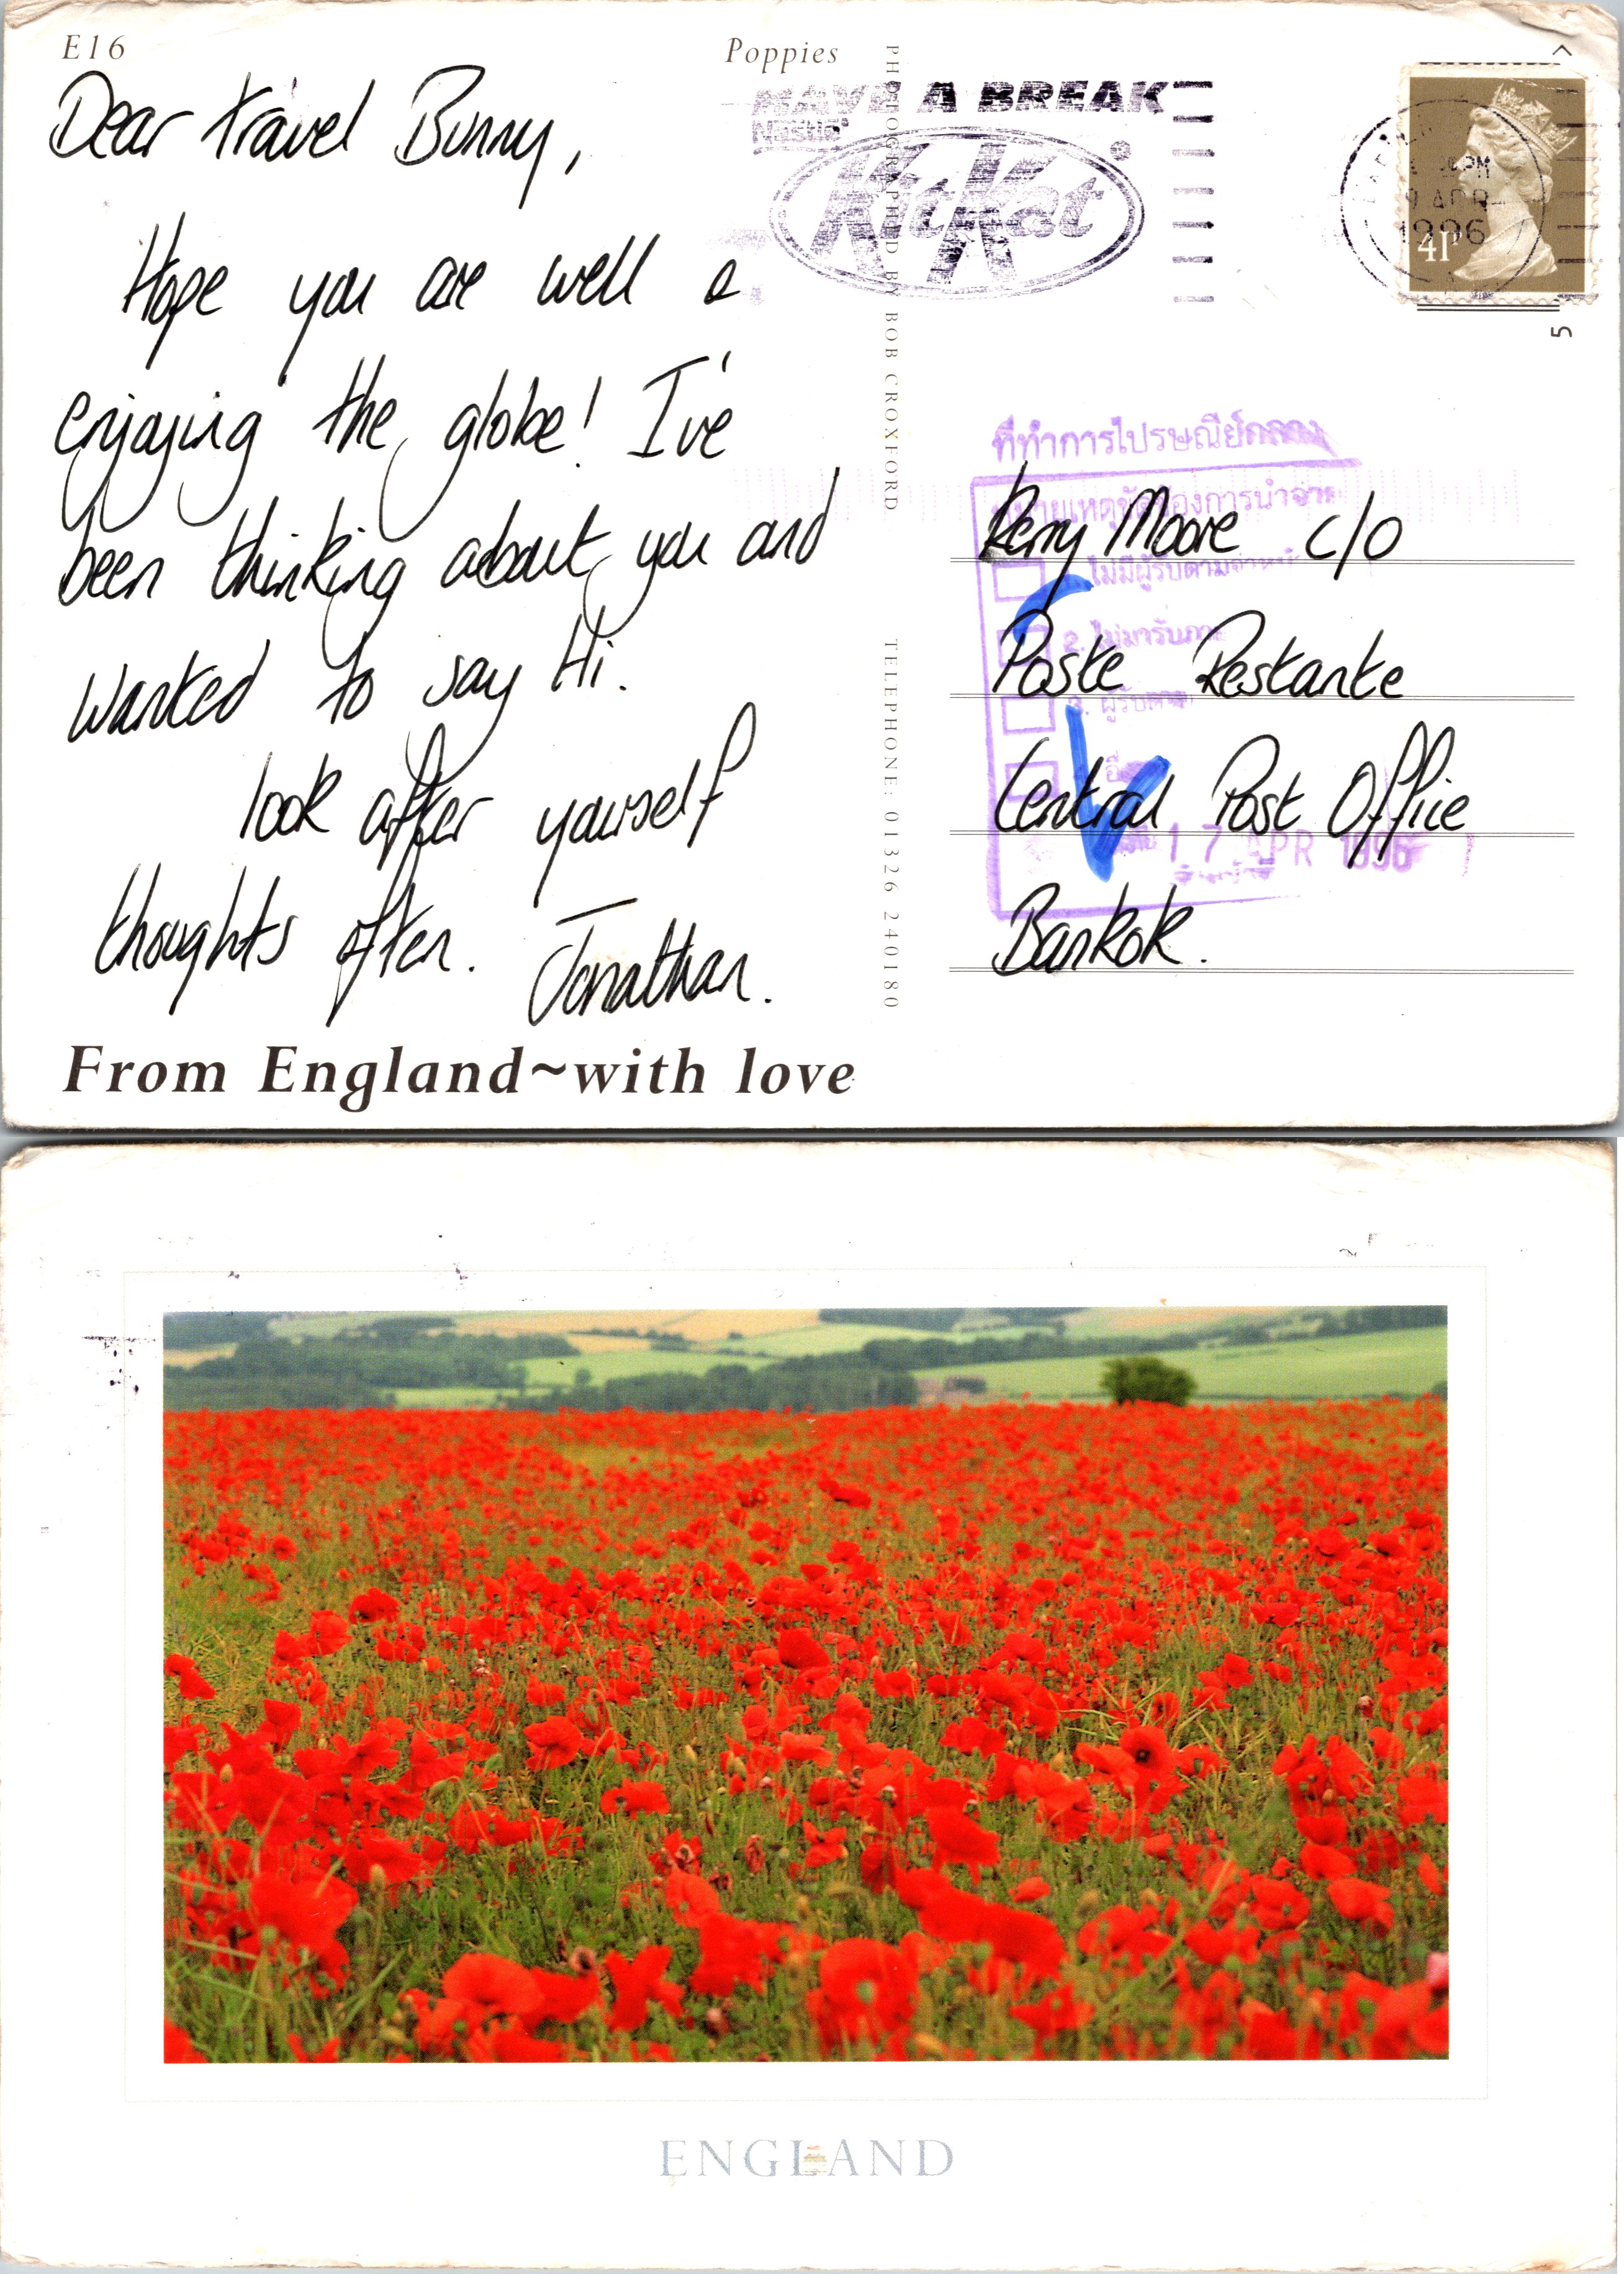 E16
Poppies
Dear travel Bunny,
Hope you are well &
enjoying the globe! I've
been thinking about you and
wanted to say Hi.
look after yourself
thoughts often. Jonathan.
From England~with love
PHOTOGRAPHED BY BOB CROXFORD
TELEPHONE: 01326 240180
HAVE A BREAK
Nestlé
KitKat®
PM
9 APR
1996
41P
5
ที่ทำการไปรษณีย์กลาง
หมายเหตุขัดข้องการนำจ่าย
ไม่มีผู้รับตาม
2. ไม่มารับ
3. ผู้รับ
17 APR 1996
Kerry Moore C/O
Poste Restante
Central Post Office
Bankok.
ENGLAND